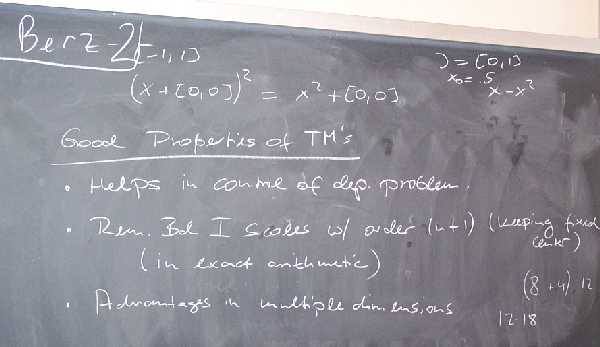 Berz-2
[-1,1]
(x+[0,0])² = x² + [0,0]
J = [0,1]
x₀ = .5
x-x²
Good Properties of TM's
• Helps in control of dep. problem.
• Rem. Bd I scales w/ order (n+1) (keeping fixed center)
(in exact arithmetic)
• Advantages in multiple dimensions
(8+4)·12
12·18